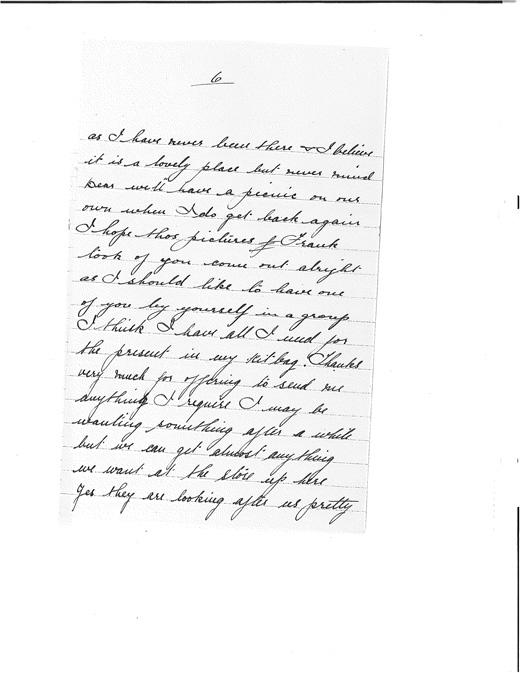 6
as I have never been there & I believe
it is a lovely place but never mind
Dear we'll have a picnic on our
own when I do get back again
I hope thos pictures of Frank
took of you come out alright
as I should like to have one
of you by yourself in a group
I think I have all I need for
the present in my kit bag. Thanks
very much for offering to send me
anything I require I may be
wanting something after a while
but we can get almost anything
we want at the store up here
Yes they are looking after us pretty